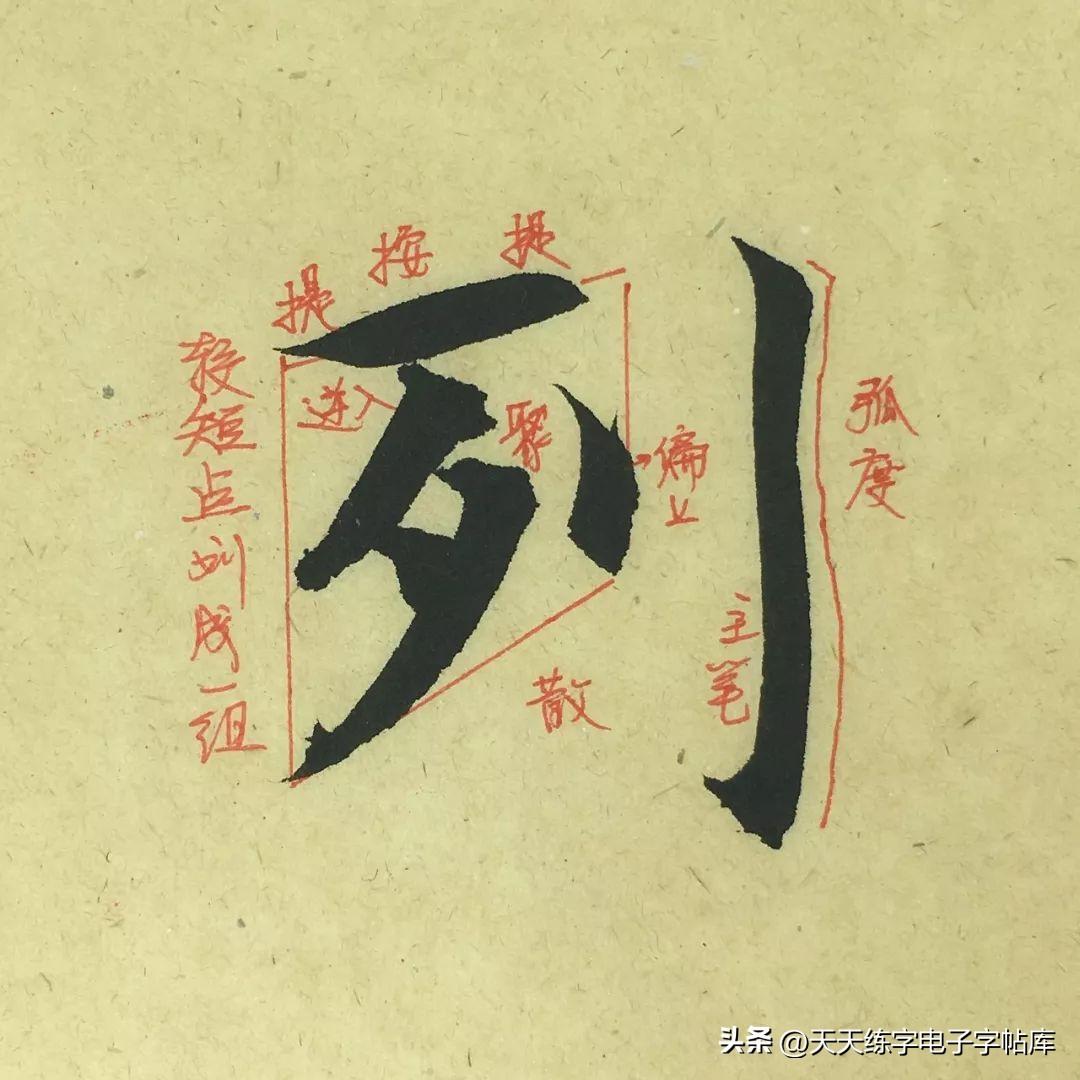 提 按 提
列
较短点划成一组
进入
聚
偏上
弧度
主笔
散
头条 @天天练字电子字帖库